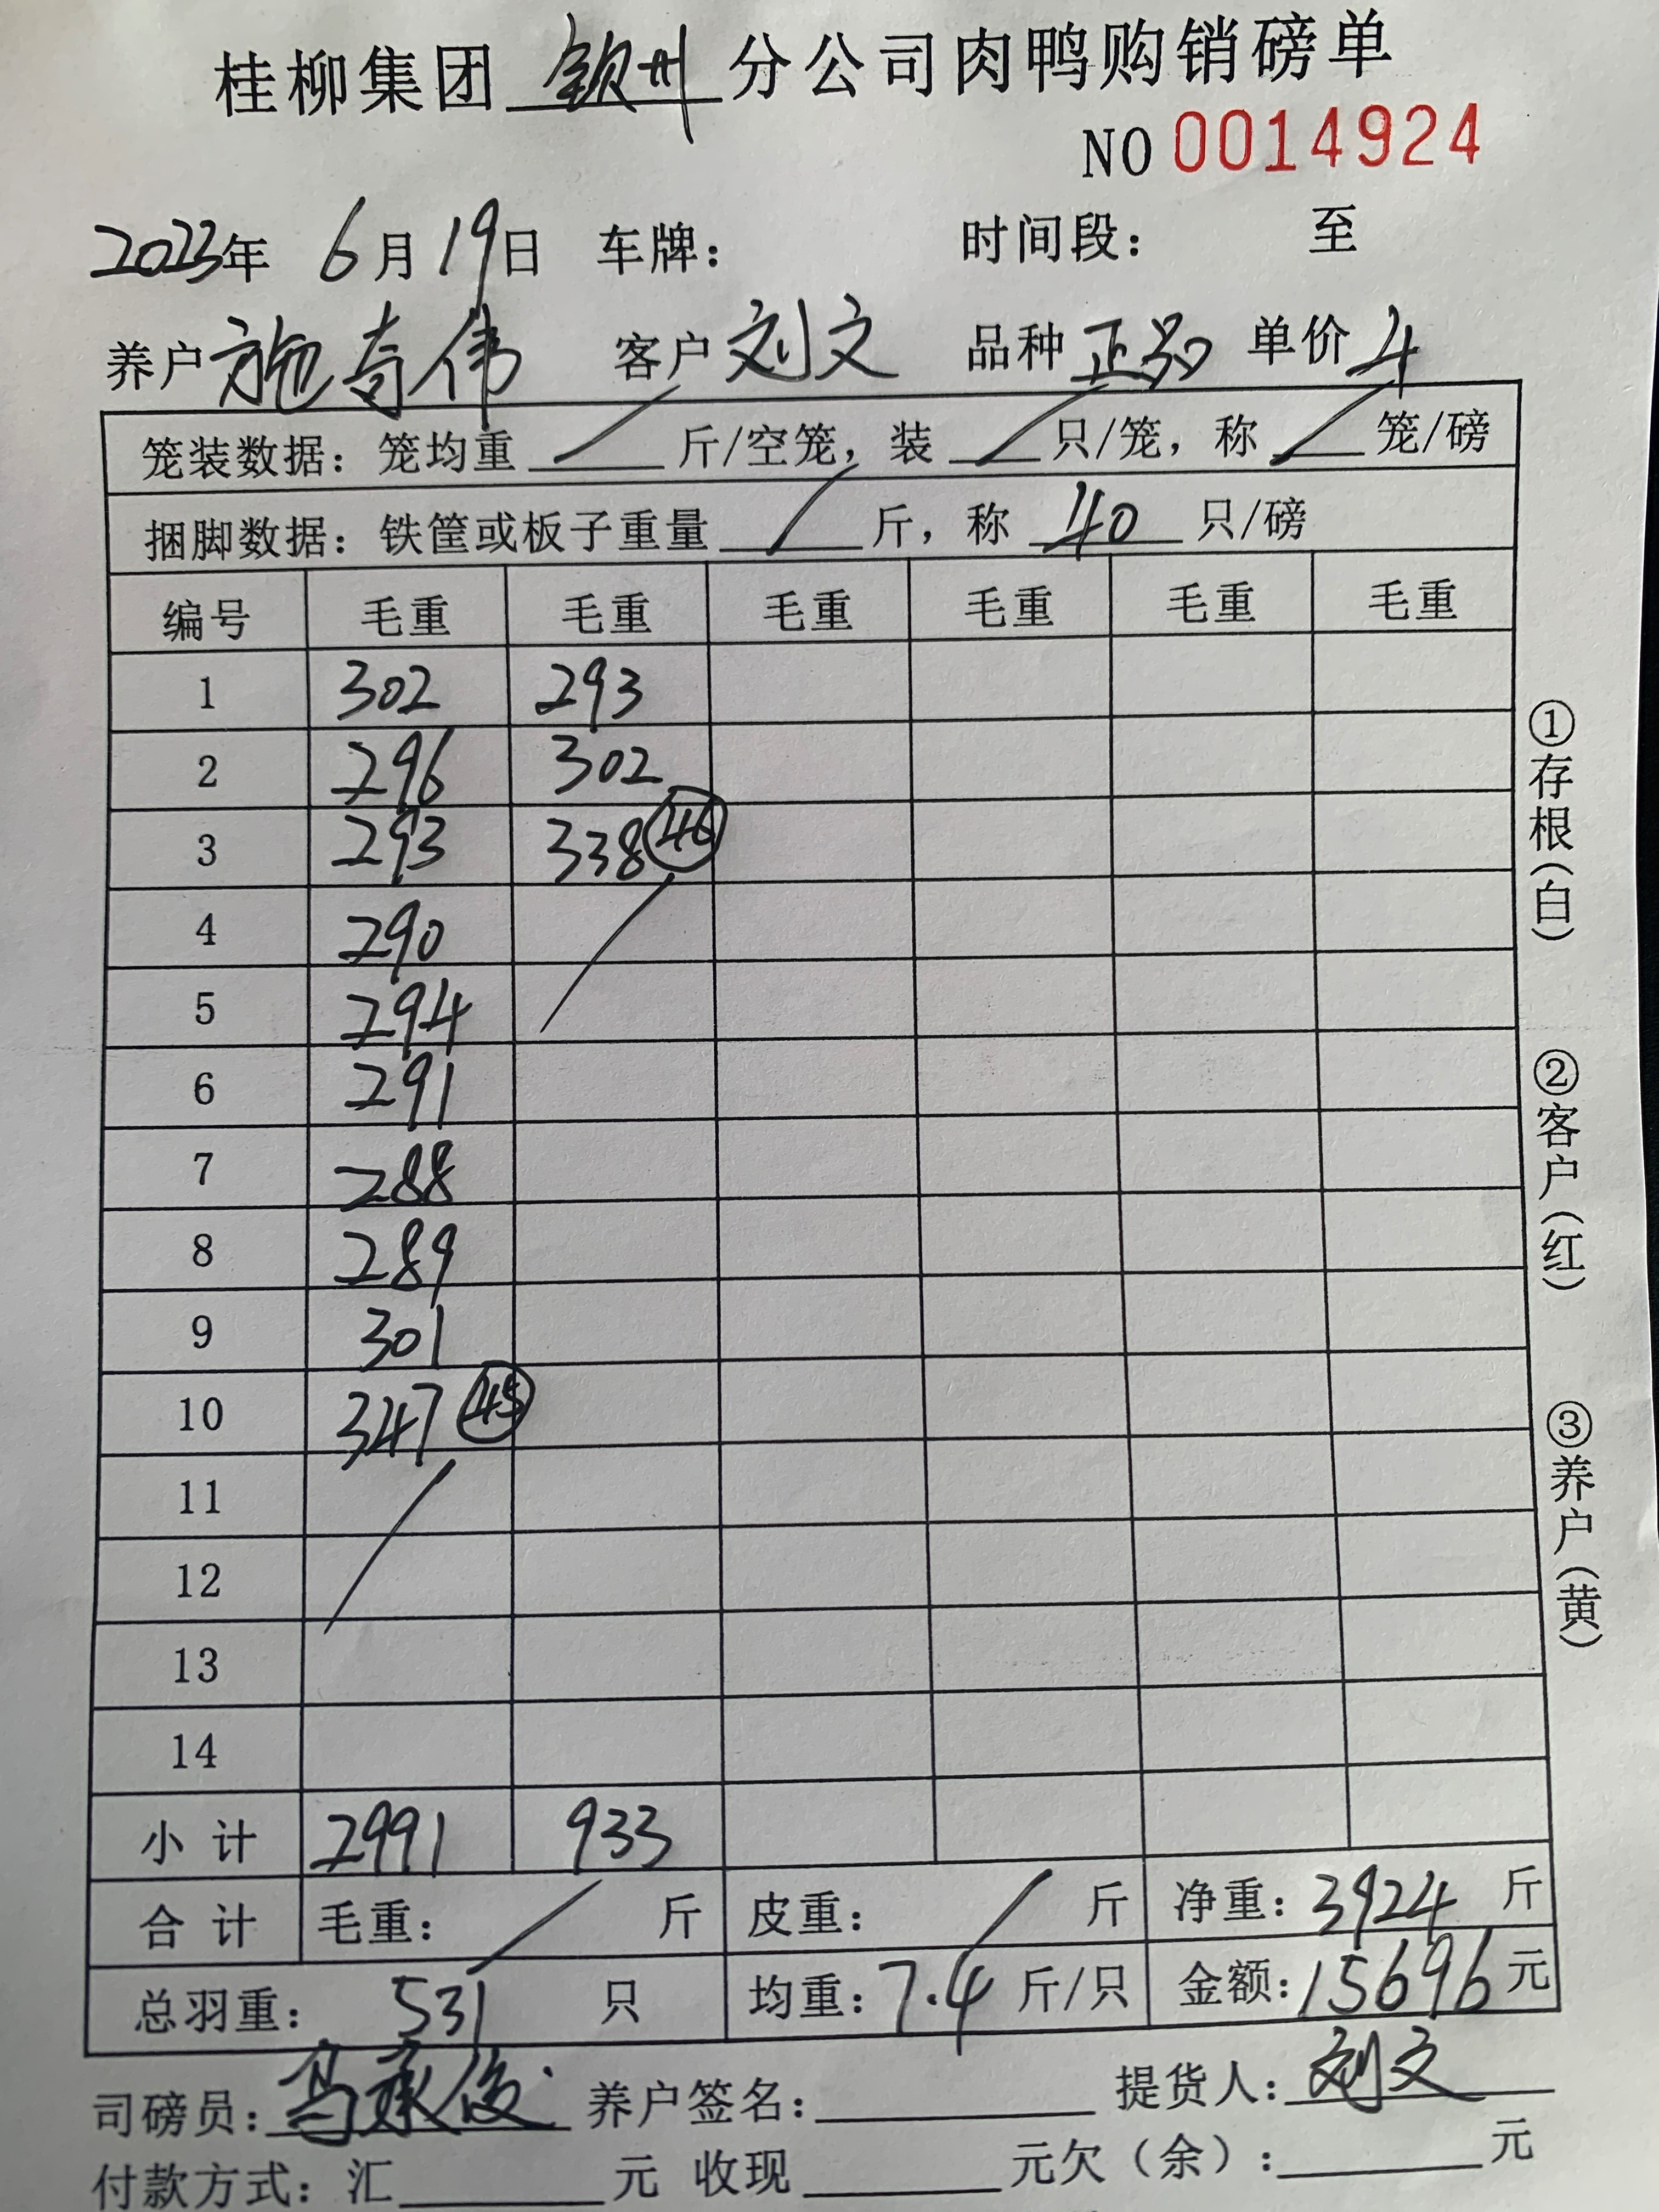 桂柳集团钦州分公司肉鸭购销磅单
NO 0014924
2023年 6月19日 车牌： 时间段： 至
养户施奇伟 客户刘文 品种正品 单价4
笼装数据：笼均重 / 斤/空笼，装 / 只/笼，称 / 笼/磅
捆脚数据：铁筐或板子重量 / 斤，称 40 只/磅
编号 毛重 毛重 毛重 毛重 毛重 毛重
1 302 293
2 296 302
3 293 338 46
4 290
5 294
6 291
7 288
8 289
9 301
10 347 45
11
12
13
14
小计 2991 933
合计 毛重： / 斤 皮重： / 斤 净重：3924 斤
总羽重： 531 只 均重：7.4 斤/只 金额：15696元
司磅员：冯承俊 养户签名： 提货人：刘文
付款方式：汇 元 收现 元欠（余）： 元
①存根（白）
②客户（红）
③养户（黄）